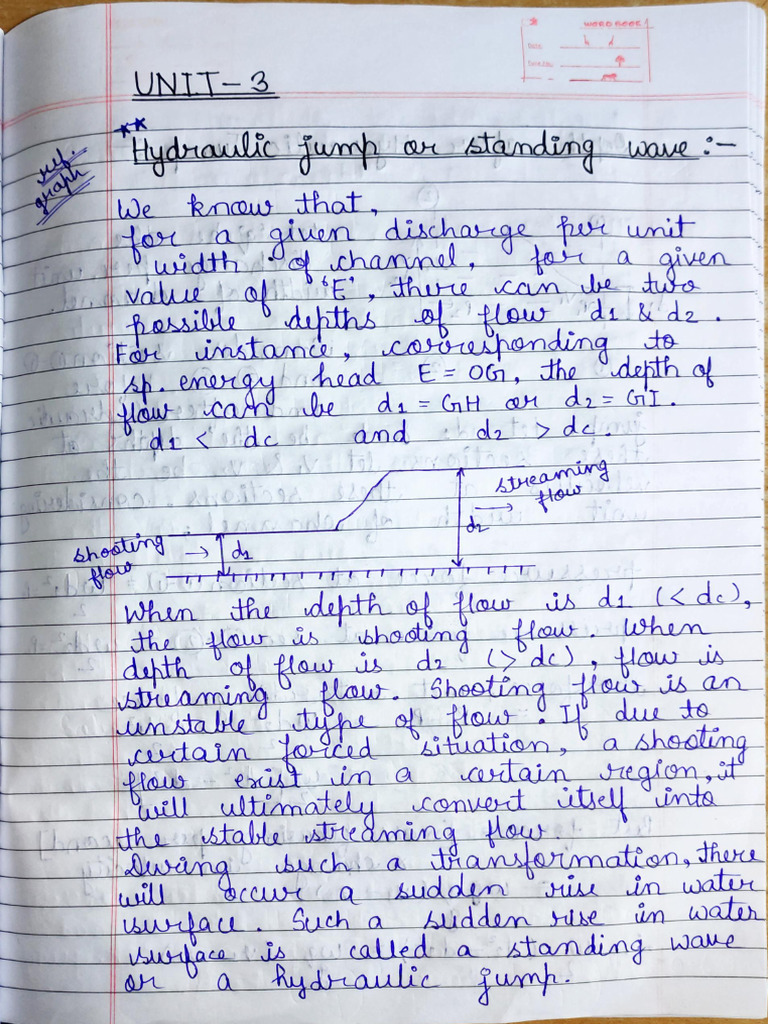 UNIT-3
**
Hydraulic jump or standing wave :-
ref.
graph
We know that,
for a given discharge per unit
width of channel, for a given
value of 'E', there can be two
possible depths of flow d1 & d2.
For instance, corresponding to
sp. energy head E = OG, the depth of
flow can be d1 = GH or d2 = GI.
d1 < dc and d2 > dc.
streaming
flow
d2
shooting
flow
d1
When the depth of flow is d1 (< dc),
the flow is shooting flow. When
depth of flow is d2 (> dc), flow is
streaming flow. Shooting flow is an
unstable type of flow. If due to
certain forced situation, a shooting
flow exist in a certain region, it
will ultimately convert itself into
the stable streaming flow
During such a transformation, there
will occur a sudden rise in water
surface. Such a sudden rise in water
surface is called a standing wave
or a hydraulic jump.